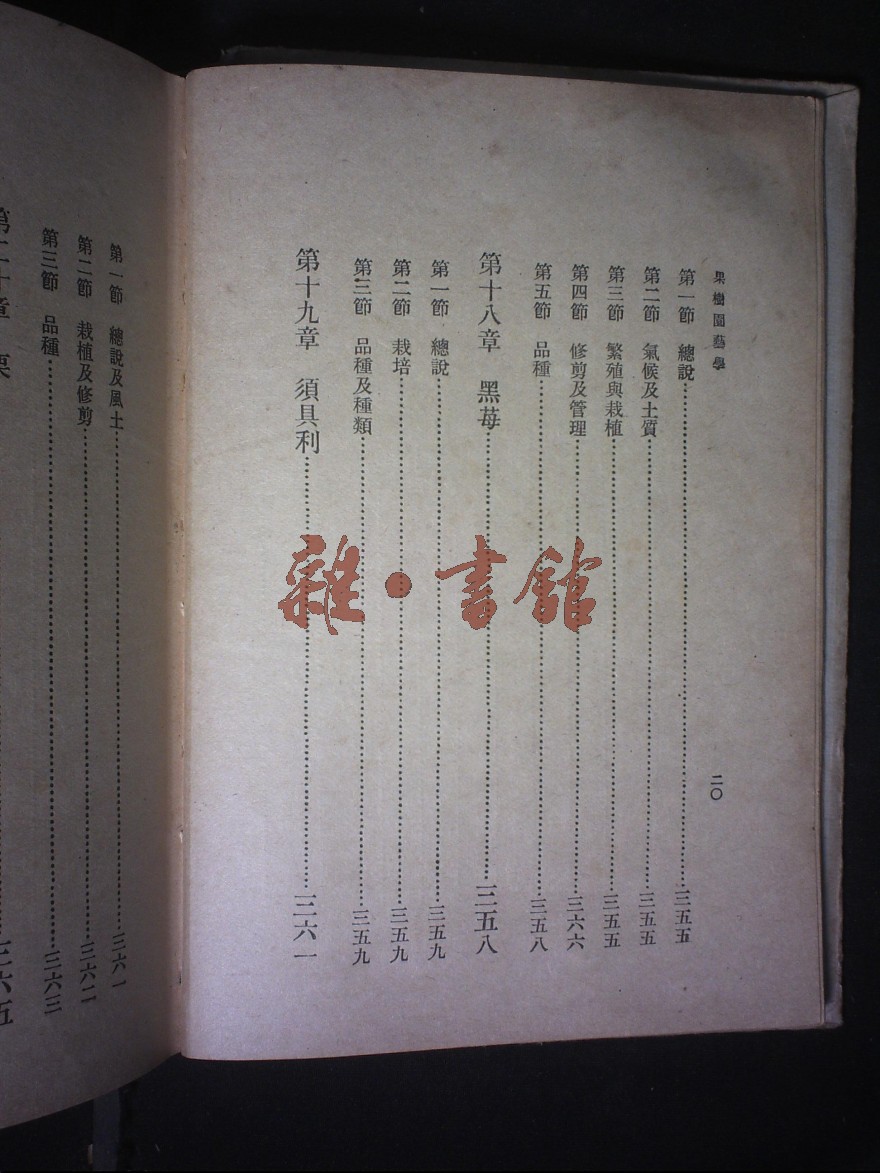 果樹園藝學
二〇
第一節 總說……三五五
第二節 氣候及土質……三五五
第三節 繁殖與栽植……三五五
第四節 修剪及管理……三六六
第五節 品種……三五八
第十八章 黑苺……三五八
第一節 總說……三五九
第二節 栽培……三五九
第三節 品種及種類……三五九
第十九章 須具利……三六一
第一節 總說及風土……三六一
第二節 栽植及修剪……三六二
第三節 品種……三六三
第二十章 栗……三六五
雜·書館